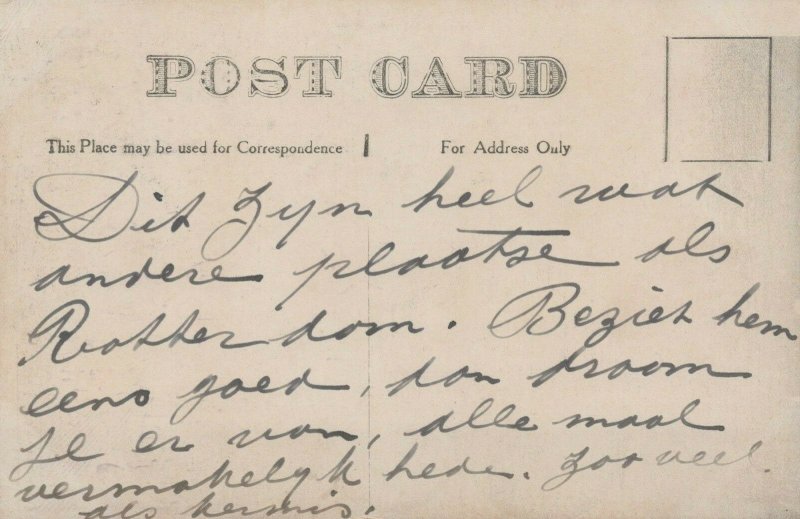 POST CARD
This Place may be used for Correspondence
For Address Only
Dit zyn heel wat
andere plaatse als
Rotterdam. Beziet hem
eens goed, dan droom
je er van, alle maal
vermakelyk hede. zoo veel
als kermis.